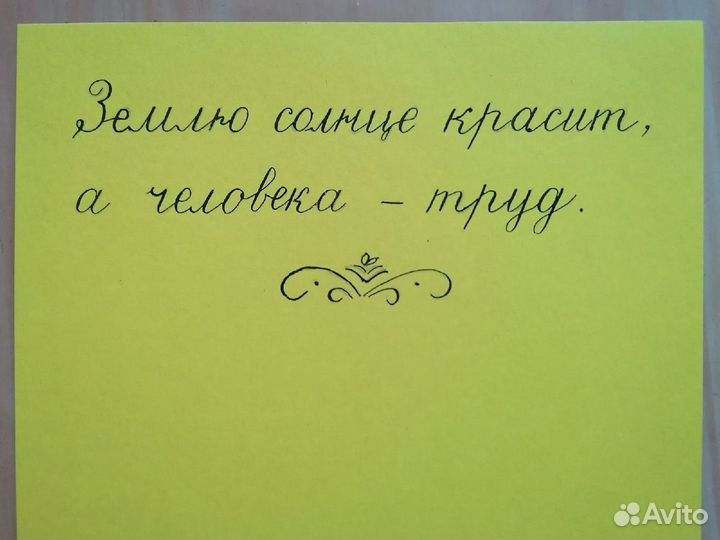 Землю солнце красит,
а человека – труд.
Avito